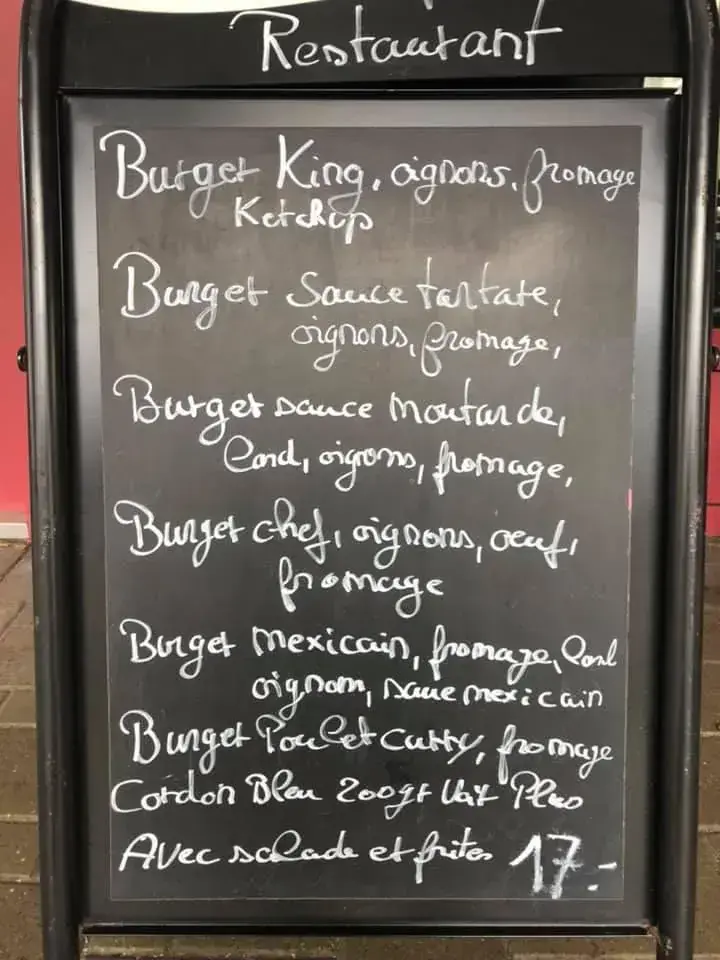 Restaurant
Burger King, oignons, fromage
Ketchup
Burger Sauce tartare,
oignons, fromage,
Burger sauce moutarde,
lard, oignons, fromage,
Burger chef, oignons, oeuf,
fromage
Burger mexicain, fromage, lard
oignom, sauce mexicain
Burger Poulet curry, fromage
Cordon Bleu 200gr
Avec salade et frites 17.-